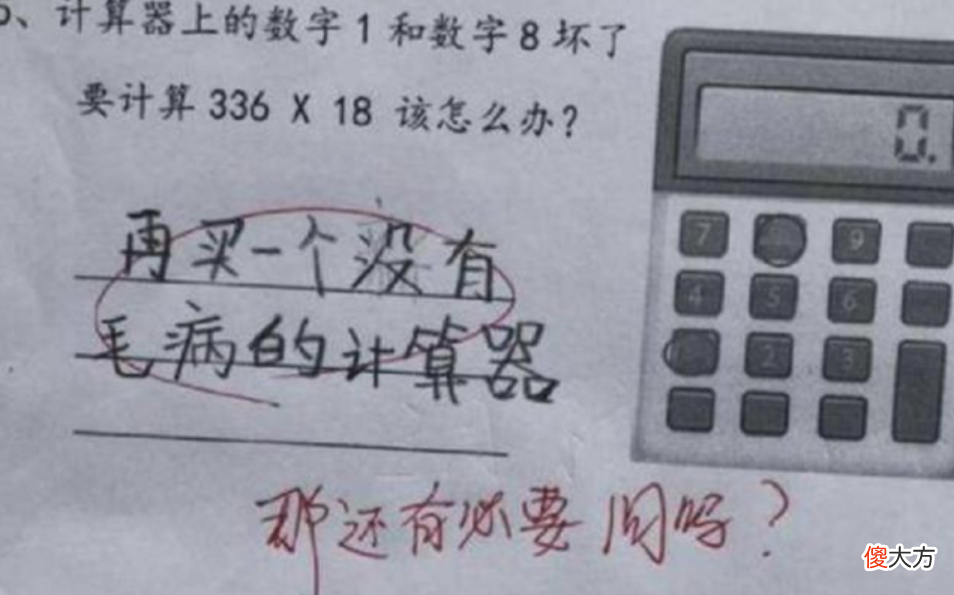 、计算器上的数字1和数字8坏了
要计算336 X 18 该怎么办?
再买一个没有
毛病的计算器
那还有必要问吗?
0.
7 9
4 5 6
2 3
傻大方